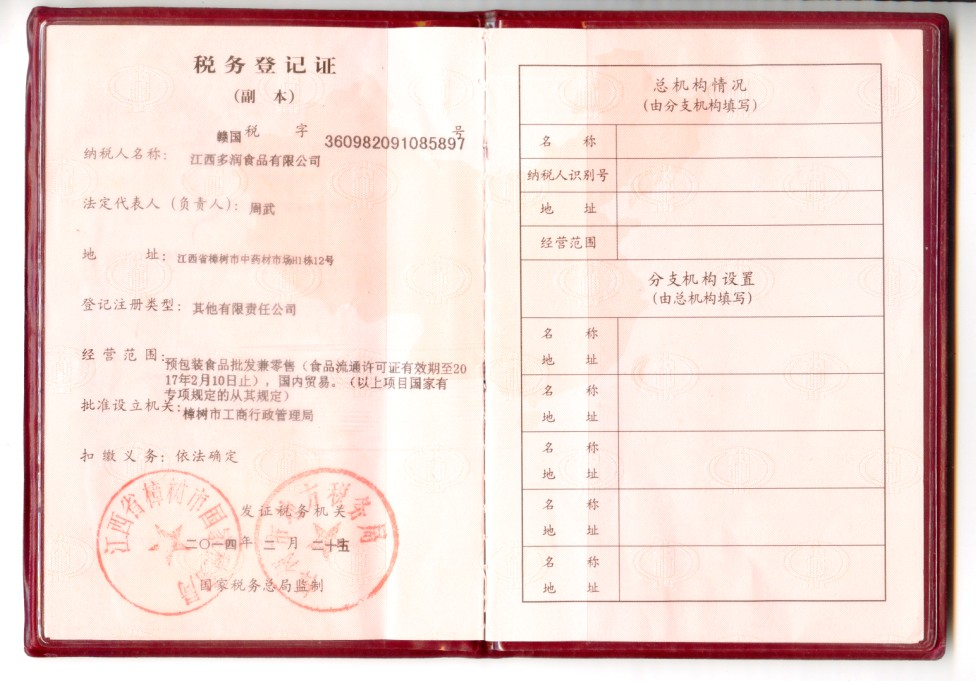 税务登记证
(副 本)
赣国 税 字 360982091085897 号
纳税人名称: 江西多润食品有限公司
法定代表人(负责人): 周武
地 址: 江西省樟树市中药材市场H1栋12号
登记注册类型: 其他有限责任公司
经营范围: 预包装食品批发兼零售(食品流通许可证有效期至20
17年2月10日止), 国内贸易。(以上项目国家有
专项规定的从其规定)
批准设立机关: 樟树市工商行政管理局
扣缴义务: 依法确定
江西省樟树市国家税务局
地方税务局
发证税务机关
二〇一四年 二 月 二十五
国家税务总局监制
总机构情况
(由分支机构填写)
名 称
纳税人识别号
地 址
经营范围
分支机构设置
(由总机构填写)
名 称
地 址
名 称
地 址
名 称
地 址
名 称
地 址
名 称
地 址